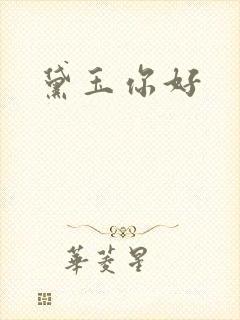 黛玉你好
華菱星